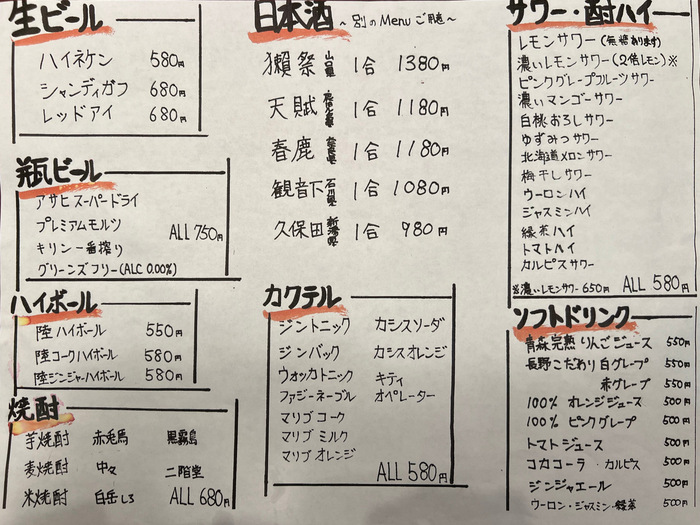 生ビール
ハイネケン 580円
シャンディガフ 680円
レッドアイ 680円
瓶ビール
アサヒスーパードライ
プレミアムモルツ
キリン一番搾り
グリーンズフリー(ALC 0.00%)
ALL 750円
ハイボール
陸ハイボール 550円
陸コークハイボール 580円
陸ジンジャーハイボール 580円
焼酎
芋焼酎 赤兎馬 黒霧島
麦焼酎 中々 二階堂
米焼酎 白岳しろ ALL 680円
日本酒 ～別のMenuご用意～
獺祭 山口県 1合 1380円
天賦 鹿児島県 1合 1180円
春鹿 奈良県 1合 1180円
観音下 石川県 1合 1080円
久保田 新潟県 1合 980円
カクテル
ジントニック カシスソーダ
ジンバック カシスオレンジ
ウォッカトニック キティ
ファジーネーブル オペレーター
マリブコーク
マリブミルク
マリブオレンジ
ALL 580円
サワー・酎ハイ
レモンサワー(無糖あります)
濃いレモンサワー(2倍レモン)※
ピンクグレープフルーツサワー
濃いマンゴーサワー
白桃おろしサワー
ゆずみつサワー
北海道メロンサワー
梅干しサワー
ウーロンハイ
ジャスミンハイ
緑茶ハイ
トマトハイ
カルピスサワー
※濃いレモンサワー650円 ALL 580円
ソフトドリンク
青森完熟りんごジュース 550円
長野こだわり白グレープ 550円
赤グレープ 550円
100% オレンジジュース 500円
100% ピンクグレープ 500円
トマトジュース 500円
コカコーラ・カルピス 500円
ジンジャエール 500円
ウーロン・ジャスミン・緑茶 500円